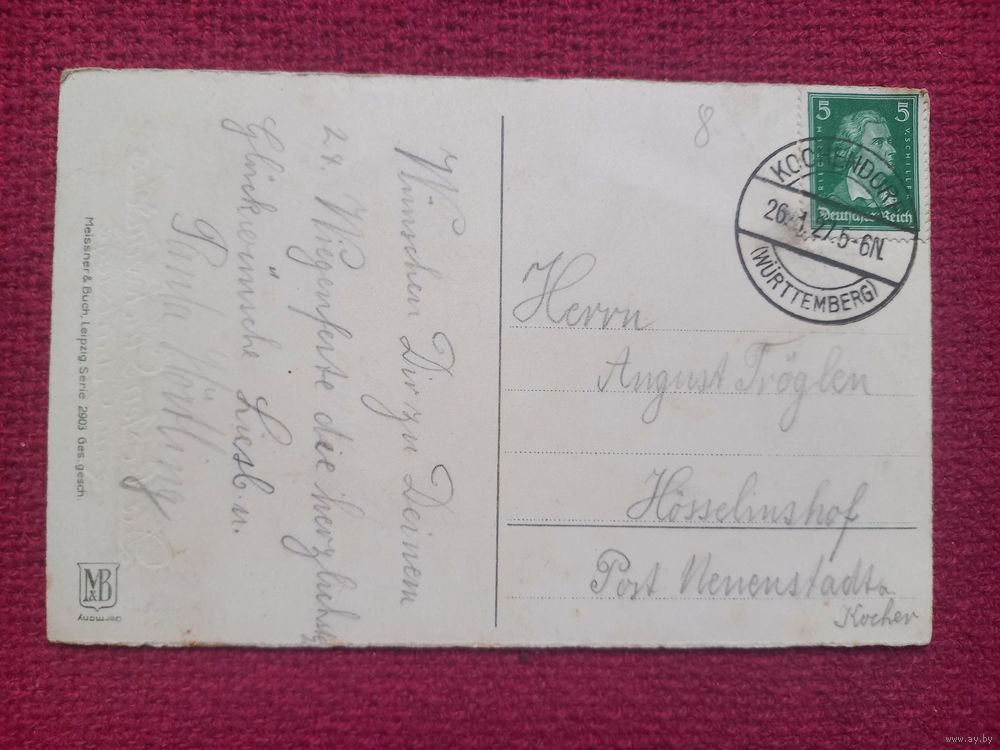 Wünschen Dir zu Deinem
24. Wiegenfeste die herzlichste
Glückwünsche Liesl u.
Paula
8
5 5
FRIEDRICH V. SCHILLER
Deutsches Reich
KOCHENDORF
26. 1. 27. 5-6N.
(WÜRTTEMBERG)
Herrn
August Tröglen
Hösselinshof
Post Neuenstadt a.
Kocher
Meissner & Buch, Leipzig Serie 2903 Ges. gesch.
M&B
Germany
www.ay.by